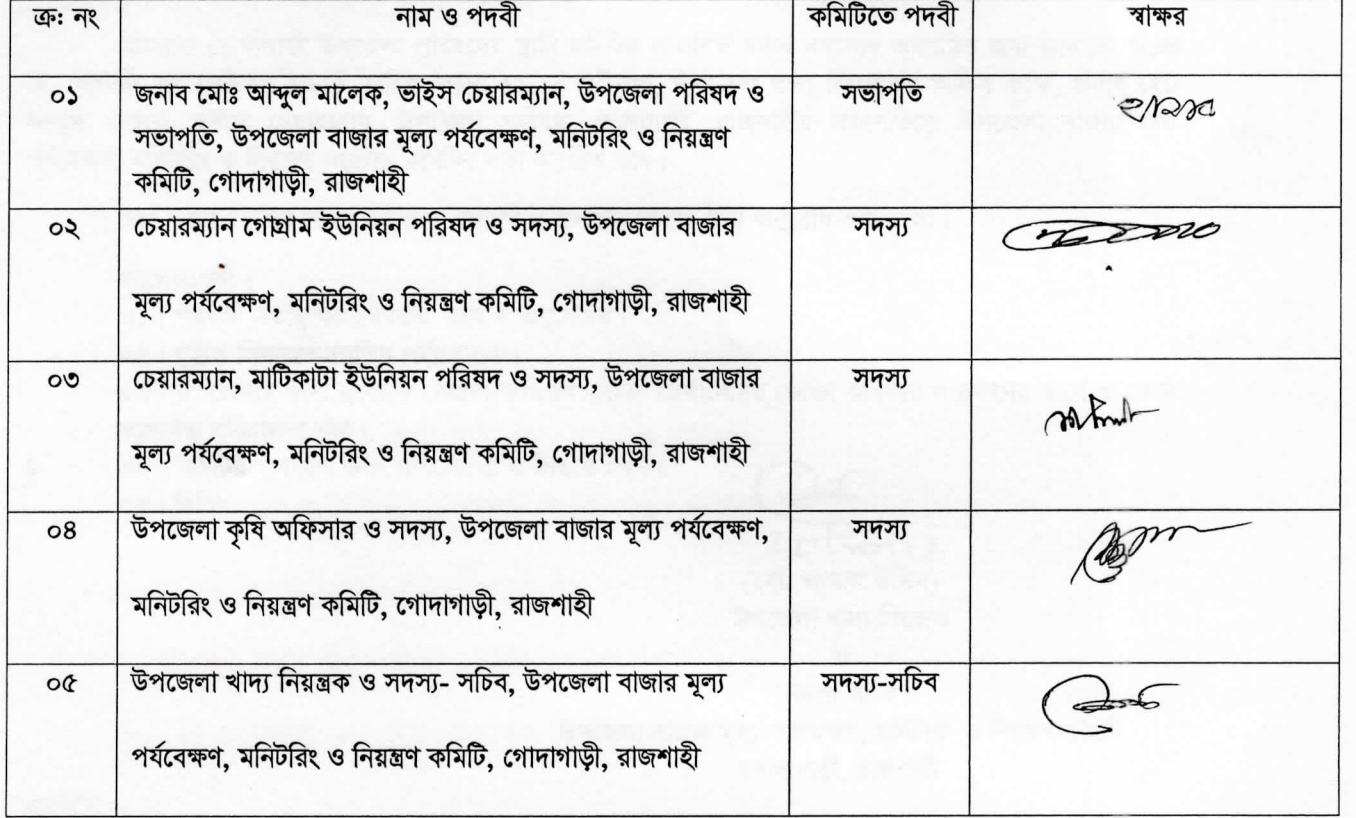 ক্র: নং নাম ও পদবী কমিটিতে পদবী স্বাক্ষর
০১ জনাব মোঃ আব্দুল মালেক, ভাইস চেয়ারম্যান, উপজেলা পরিষদ ও সভাপতি
সভাপতি, উপজেলা বাজার মূল্য পর্যবেক্ষণ, মনিটরিং ও নিয়ন্ত্রণ
কমিটি, গোদাগাড়ী, রাজশাহী
০২ চেয়ারম্যান গোগ্রাম ইউনিয়ন পরিষদ ও সদস্য, উপজেলা বাজার সদস্য
মূল্য পর্যবেক্ষণ, মনিটরিং ও নিয়ন্ত্রণ কমিটি, গোদাগাড়ী, রাজশাহী
০৩ চেয়ারম্যান, মাটিকাটা ইউনিয়ন পরিষদ ও সদস্য, উপজেলা বাজার সদস্য
মূল্য পর্যবেক্ষণ, মনিটরিং ও নিয়ন্ত্রণ কমিটি, গোদাগাড়ী, রাজশাহী
০৪ উপজেলা কৃষি অফিসার ও সদস্য, উপজেলা বাজার মূল্য পর্যবেক্ষণ, সদস্য
মনিটরিং ও নিয়ন্ত্রণ কমিটি, গোদাগাড়ী, রাজশাহী
০৫ উপজেলা খাদ্য নিয়ন্ত্রক ও সদস্য- সচিব, উপজেলা বাজার মূল্য সদস্য-সচিব
পর্যবেক্ষণ, মনিটরিং ও নিয়ন্ত্রণ কমিটি, গোদাগাড়ী, রাজশাহী